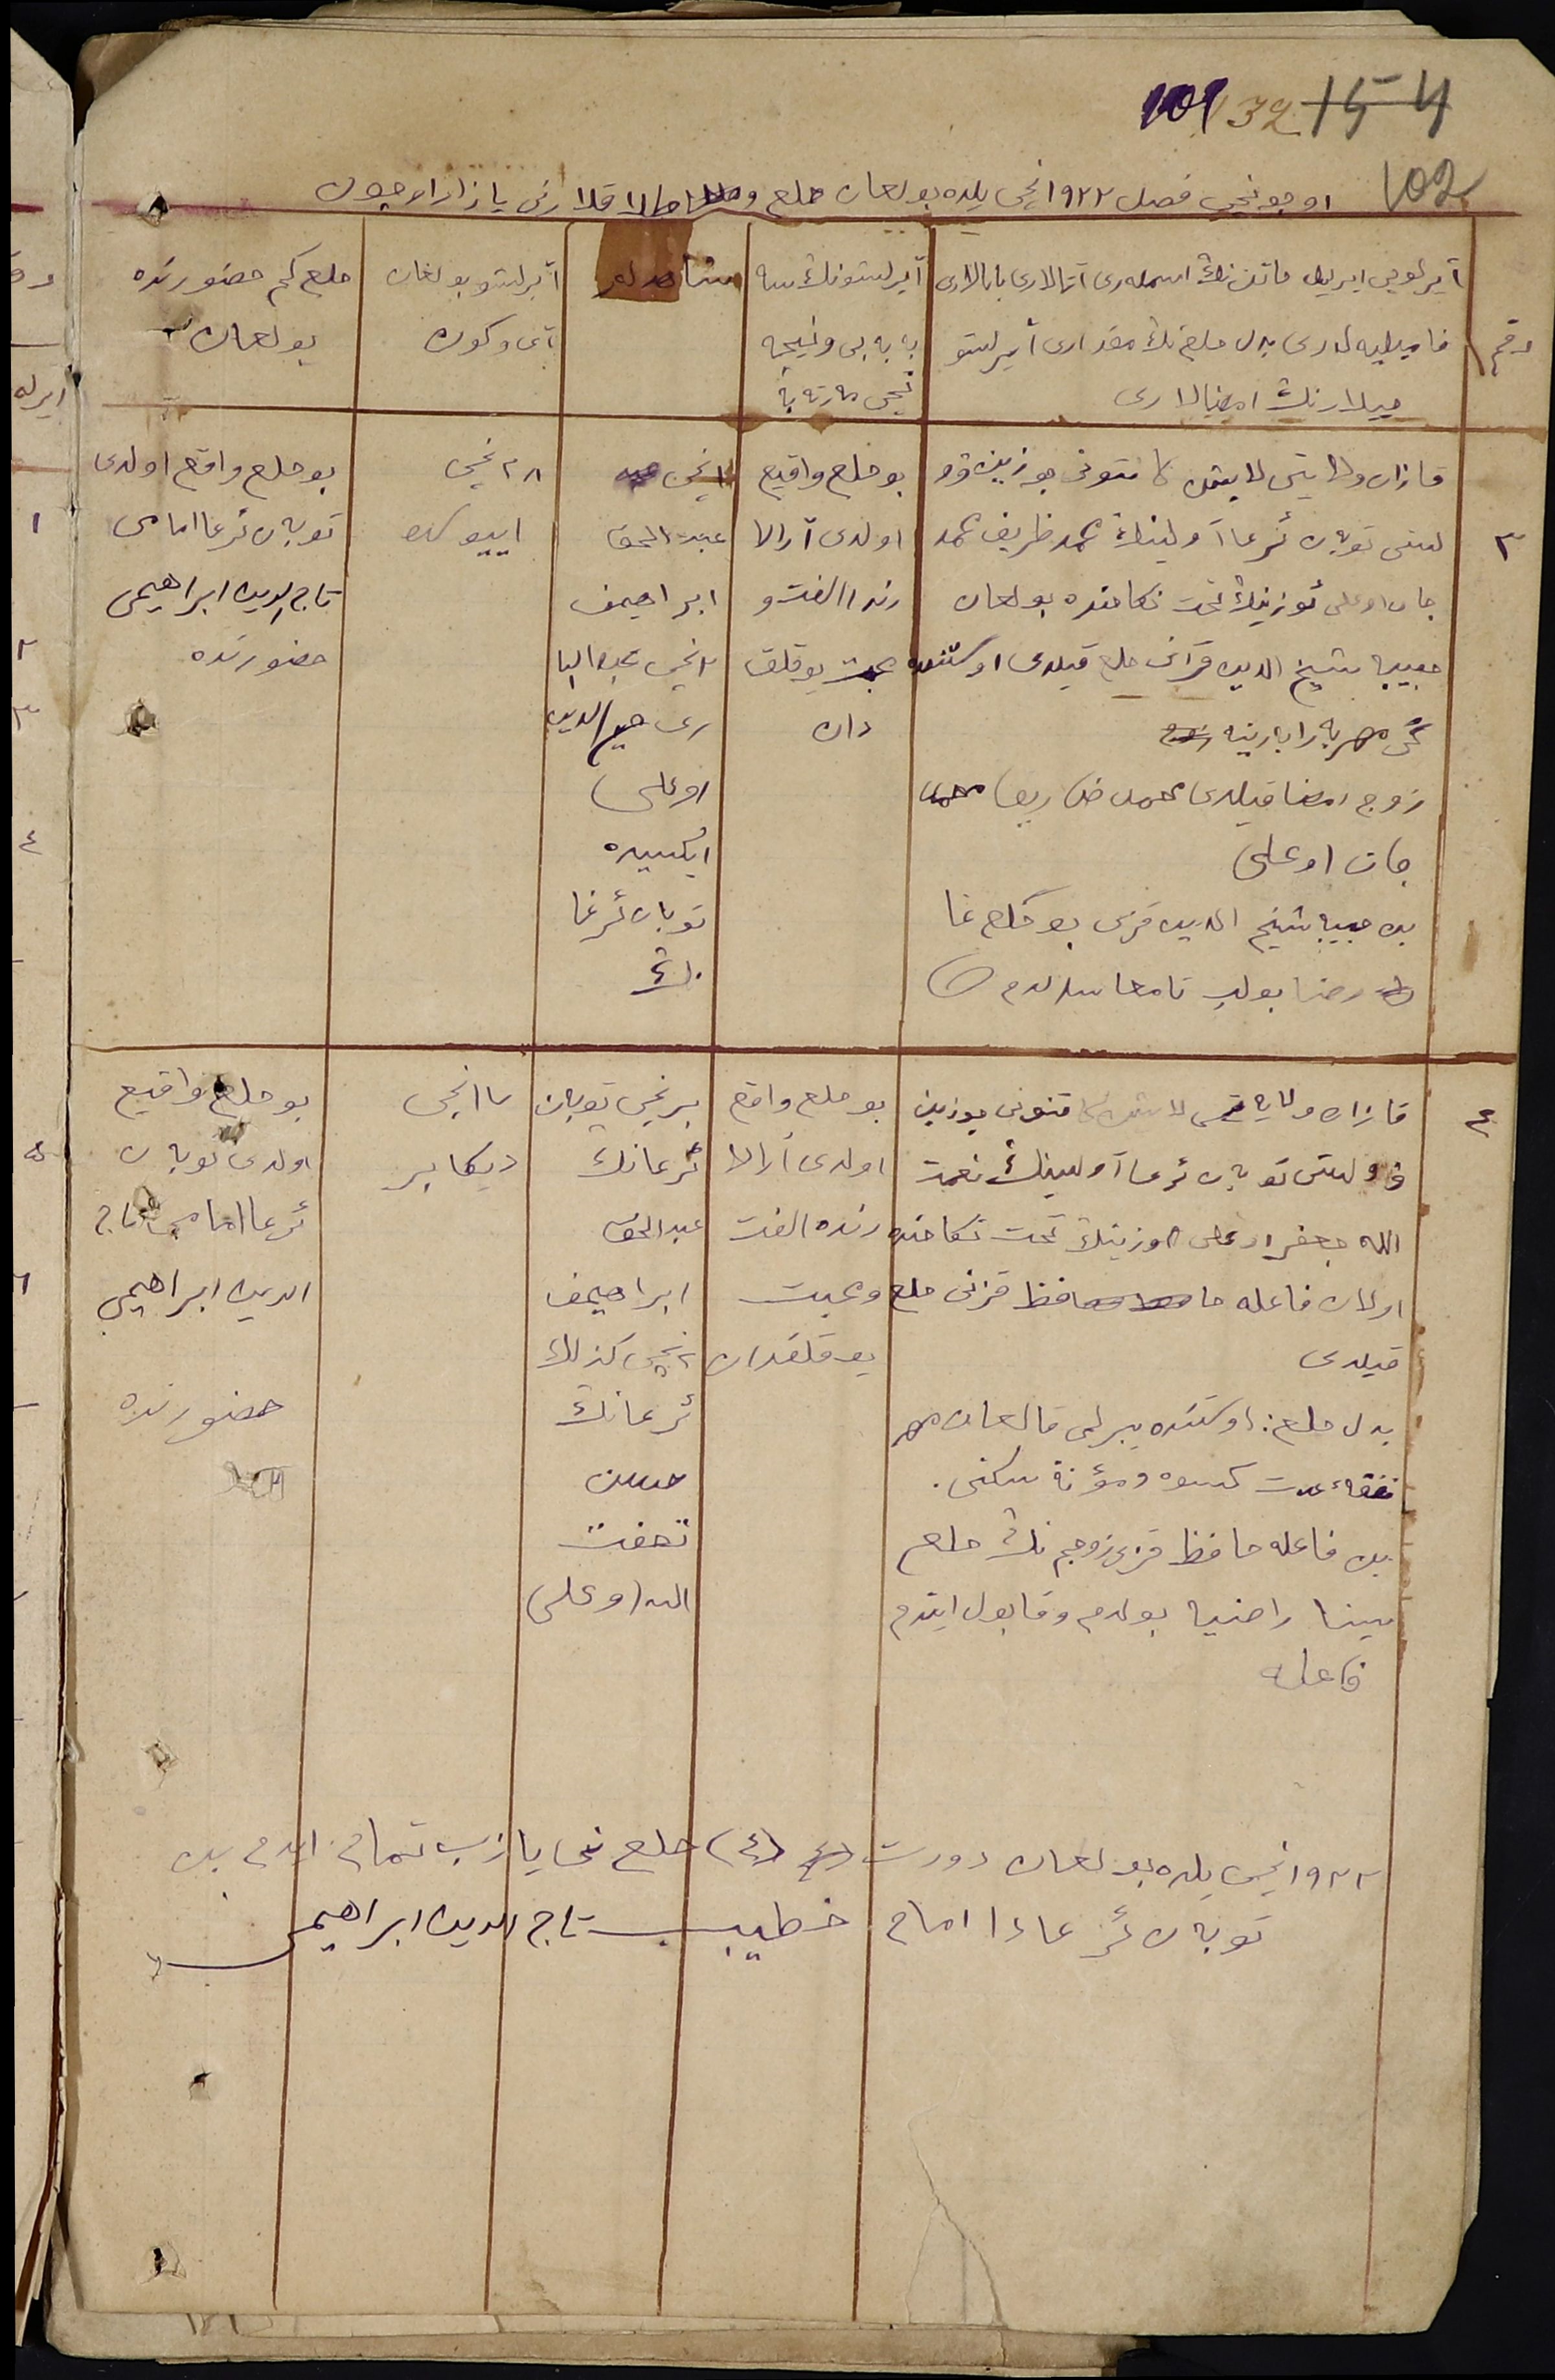 101 32 154
102
اوچونچی فصل ١٩٢٢ انچی یلده بولعان خلع و طلاقلارنی یازار اوچون
رقم
آیرلوچی ایربلن خاتن نڭ اسملەری آتالاری بابالاری
فامیلیه لەری بدل خلع نڭ مقداری آیرلشو
چیلارنڭ امضالاری
آیرلشونڭ سه
به بی ونیچه
نچی مارته به
شاهدلر
آیرلشو بولغان
آی وکون
خلع کم حضورنده
بولعان
٣
قازان ولایتی لایش کانتونی یوزین وو
لستی توبان ئرعا آولینڭ محمد ظریف محمد
جان اوعلی ئوزینڭ تحت نکاحنده بولعان
حبیبه شیخ الدین قزانی خلع قیلدی اوستنده
گی مهر به رابارینه
زوج امضا قیلدی محمد ظریف محمد
جان اوعلی
بن حبیبه شیخ الدین قزی بو خلع غا
رضا بولب تامعا سالدم
بو خلع واقیع
اولدی آرالا
رندا الفت و
محبت یوقلق
دان
١ نچی
عبدالحق
ابراهیمف
٢ نچی عبدالبا
ری حیم الدین
اوعلی
ایکسیده
توبان ئرغا
نڭ
٢٨ نچی
ایبول
بو خلع واقع اولدی
توبان ئرعا امامی
تاج الدین ابراهیمی
حضورنده
٤
قازان ولایه تی لایش کانتونی یوزین
وولستی توبان ئرعا آولینڭ نعمت
الله جعفر اوعلی ئوزینڭ تحت نکاحنده
اولان فاعله حافظ قزنی خلع
قیلدی
بدل خلع: اوستنده بیرلمی قالعان مهر
نفقهٔ عدت کسوه ومؤنة سکنی.
بن فاعله حافظ قزی زوجم نڭ خلع
یینا راضیه بولدم وقابول ایتدم
فاعله
بو خلع واقع
اولدی آرالا
رنده الفت
ومحبت
یوقلقدان
برنچی توبان
ئرعانڭ
عبدالحق
ابراهیمف
٢ نچی کذلك
ئرعانڭ
حسن
نعمت
الله اوعلی
دیکابر
بو خلع واقیع
اولدی توبان
ئرعا امامی تاج
الدین ابراهیمی
حضورنده
١٩٢٢ نچی یلده بولعان دورت (٤) خلع نی یازب تمام ایتدم بن
توبان ئرعادا امام خطیب تاج الدین ابراهیمی